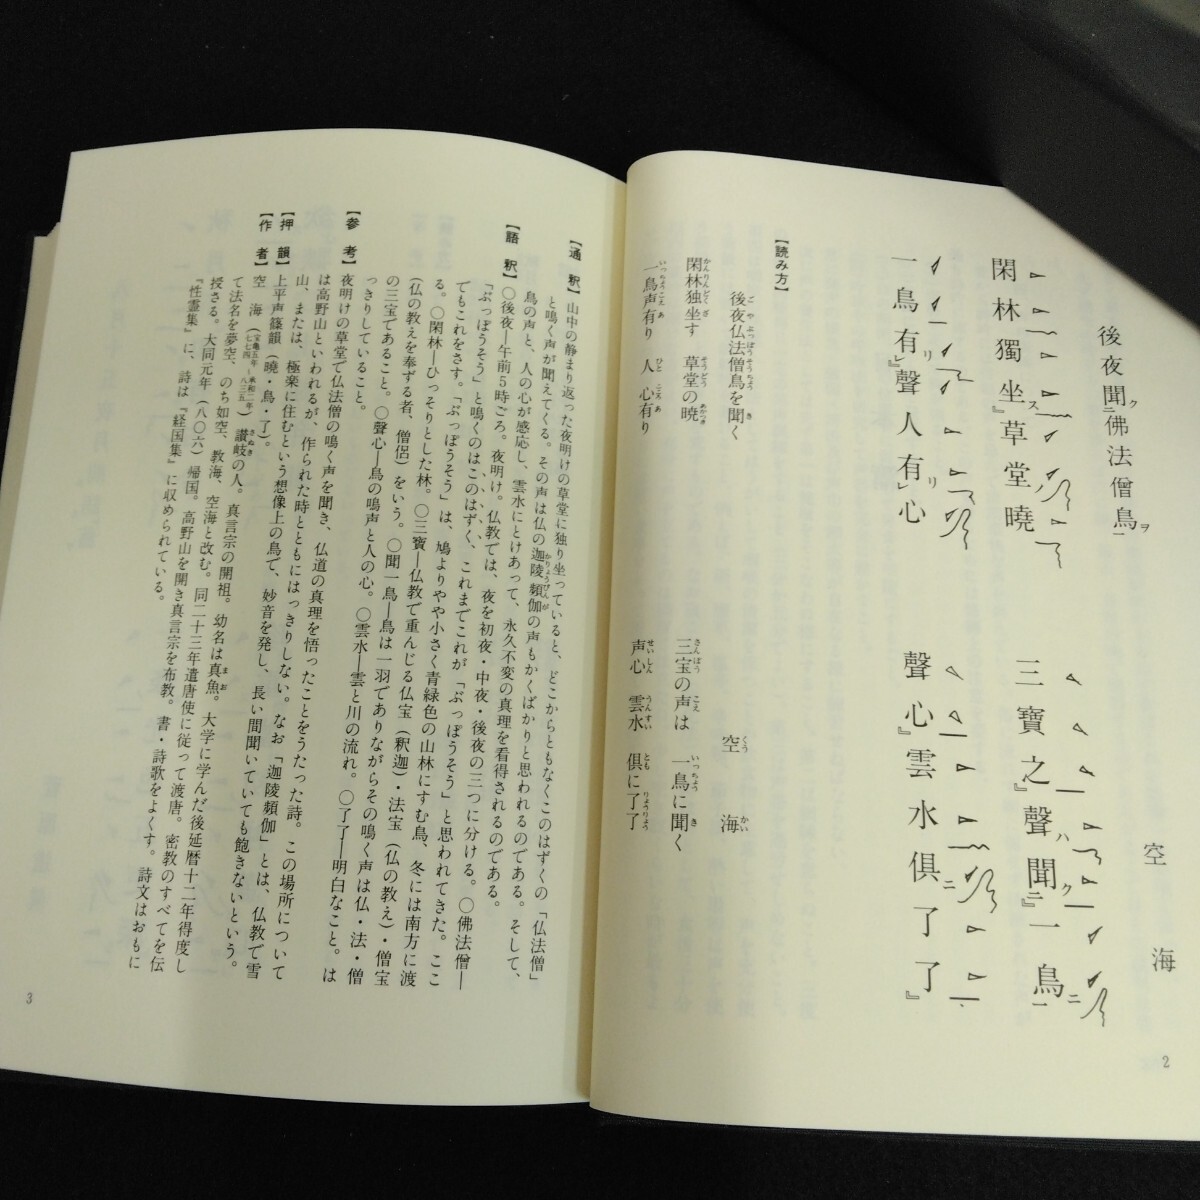 後夜聞ク二佛法僧鳥ヲ一
空海
閑林獨坐ス』草堂ノ曉
三寶之』聲ハ聞ク二』一鳥ニ一
一鳥有リ』聲人有リ』心
聲心』雲水俱ニ了了』
【読み方】
後夜仏法僧鳥を聞く
空海
閑林独坐す 草堂の暁
三宝の声は 一鳥に聞く
一鳥声有り 人 心有り
声心 雲水 倶に了了
2
【通釈】山中の静まり返った夜明けの草堂に独り坐っていると、どこからともなくこのはずくの「仏法僧」
と鳴く声が聞えてくる。その声は仏の迦陵頻伽の声もかくばかりと思われるのである。そして、
鳥の声と、人の心が感応し、雲水にとけあって、永久不変の真理を看得されるのである。
【語釈】○後夜―午前5時ごろ。夜明け。仏教では、夜を初夜・中夜・後夜の三つに分ける。○佛法僧―
「ぶっぽうそう」と鳴くのはこのはずく、これまでこれが「ぶっぽうそう」と思われてきた。ここ
でもこれをさす。「ぶっぽうそう」は、鳩よりやや小さく青緑色の山林にすむ鳥、冬には南方に渡
る。○閑林―ひっそりとした林。○三寶―仏教で重んじる仏宝（釈迦）・法宝（仏の教え）・僧宝
（仏の教えを奉ずる者、僧侶）をいう。○聞一鳥―鳥は一羽でありながらその鳴く声は仏・法・僧
の三宝であること。○聲心―鳥の鳴声と人の心。○雲水―雲と川の流れ。○了了―明白なこと。は
っきりしていること。
【参考】夜明けの草堂で仏法僧の鳴く声を聞き、仏道の真理を悟ったことをうたった詩。この場所について
は高野山といわれるが、作られた時とともにはっきりしない。なお「迦陵頻伽」とは、仏教で雪
山、または、極楽に住むという想像上の鳥で、妙音を発し、長い間聞いていても飽きないという。
【押韻】上平声篠韻（曉・鳥・了）。
【作者】空海（宝亀五年―承和二年 七七四―八三五）讃岐の人。真言宗の開祖。幼名は真魚。大学に学んだ後延暦十二年得度し
て法名を夢空、のち如空、教海、空海と改む。同二十三年遣唐使に従って渡唐。密教のすべてを伝
授さる。大同元年（八〇六）帰国。高野山を開き真言宗を布教。書・詩歌をよくす。詩文はおもに
『性霊集』に、詩は『経国集』に収められている。
3